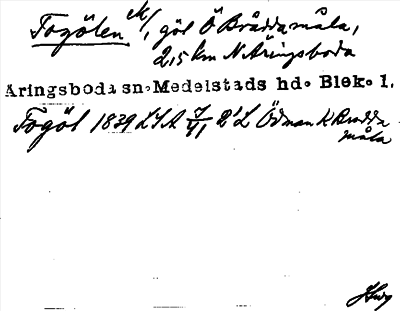 Togölen M/, göl Ö Bråddamåla,
2,5 km N Äringsboda
Aringsboda sn. Medelstads hd. Blek. 1.
Togöl 1839 LSA 7/VI 2'L Ödman K Bradda
måla